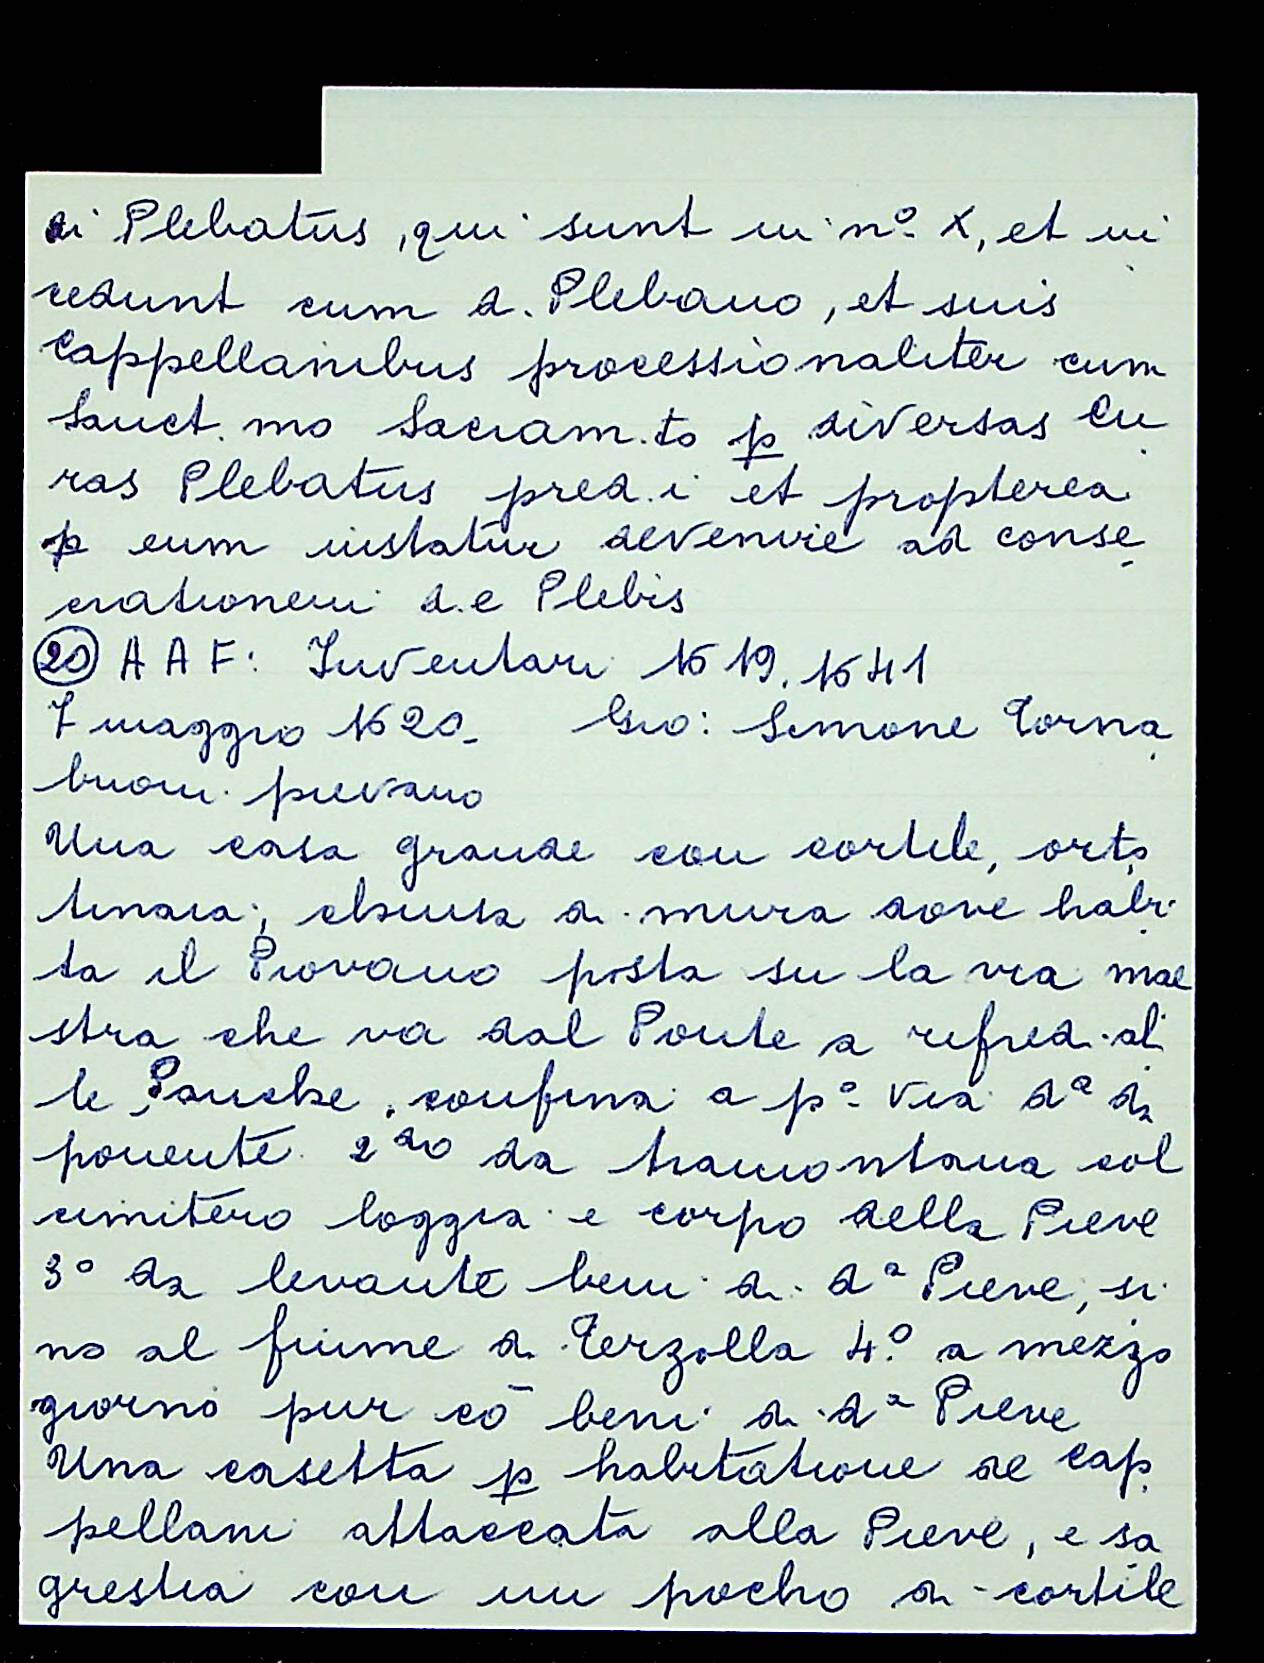 di Plebatus, qui sunt in nº X, et in
cedunt cum d. Plebano, et suis
Cappellanibus processionaliter cum
Sanct.mo Sacram.to p diversas Cu
ras Plebatus pred.i et propterea
p eum instatur devenire ad conse
crationem d.e Plebis
20 AAF: Inventari 1619.1641
7 maggio 1620_ Gio: Simone Torna
buoni pievano
Una casa grande con cortile, orto
tinaia, chiusa di mura dove habi
ta il Piovano posta su la via mae
stra che va dal Ponte a rifredi al
le Panche, confina a pº Via dª da
ponente 2do da tramontana col
cimitero loggia e corpo della Pieve
3º da levante beni di dª Pieve, si
no al fiume di Terzolla 4º a mezzo
giorno pur cō beni di dª Pieve
Una casetta p habitatione de cap
pellani attaccata alla Pieve, e sa
grestia con un pocho di cortile